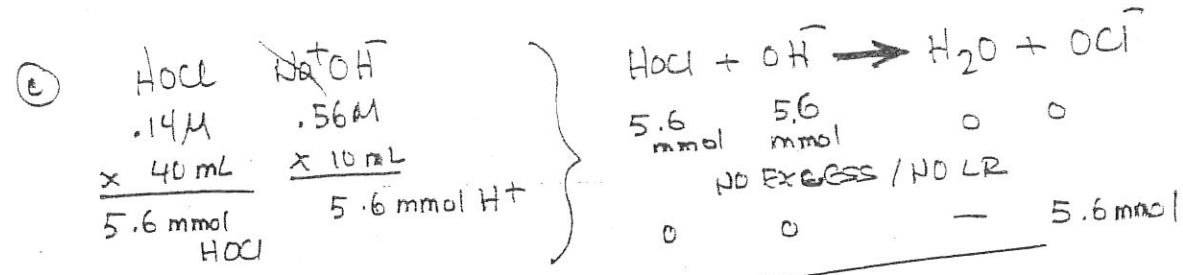 (e) HOCl Na⁺OH⁻
.14M .56M
x 40 mL x 10 mL
5.6 mmol HOCl 5.6 mmol H+
HOCl + OH⁻ → H₂O + OCl⁻
5.6 mmol 5.6 mmol 0 0
NO EXCESS / NO LR
0 0 — 5.6 mmol